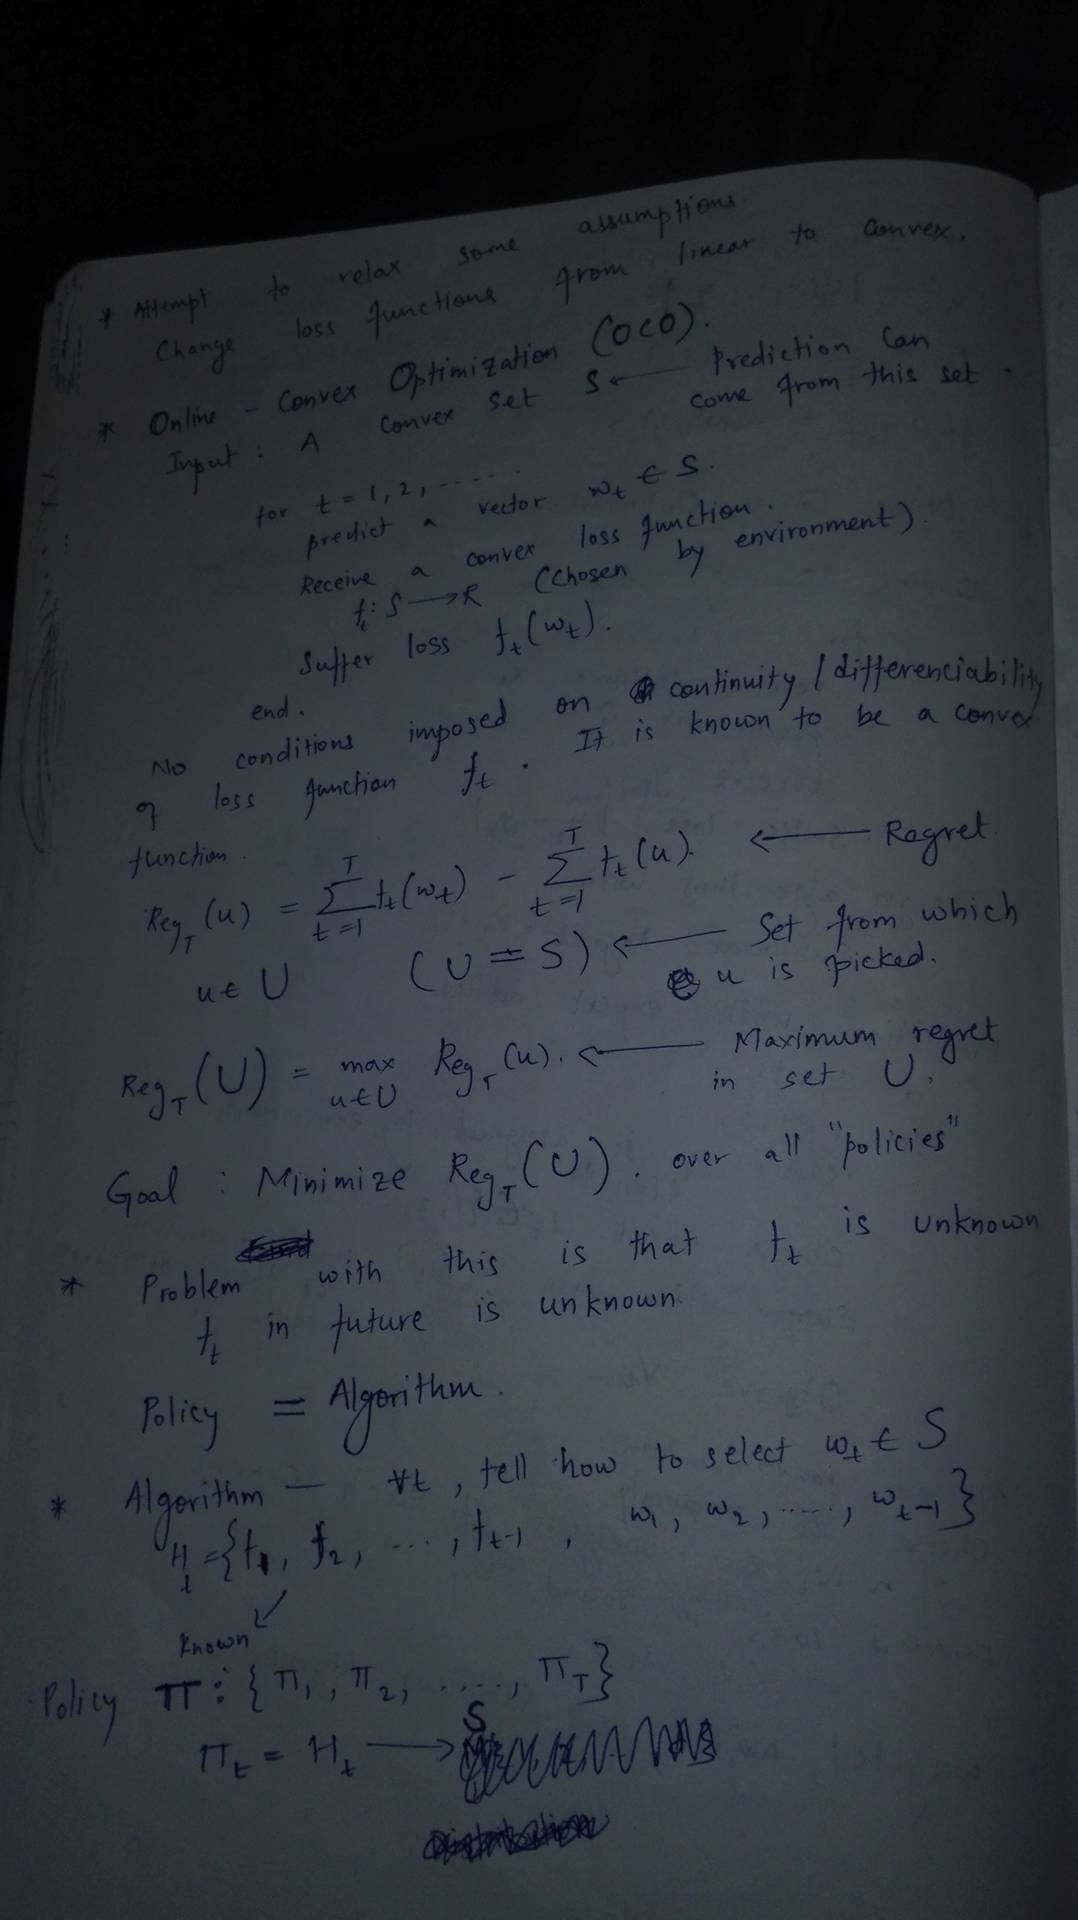 * Attempt to relax some assumptions
Change loss functions from linear to convex.
* Online - Convex Optimization (OCO).
Input : A convex set S ← Prediction can
come from this set.
for t = 1, 2, ....
predict a vector w_t ∈ S.
Receive a convex loss function.
f_t : S → R (Chosen by environment)
Suffer loss f_t(w_t).
end.
No conditions imposed on continuity / differenciability
of loss function f_t. It is known to be a convex
function.
Reg_T (u) = Σ_{t=1}^{T} f_t(w_t) - Σ_{t=1}^{T} f_t(u). ← Regret.
u ∈ U (U = S) ← Set from which
u is picked.
Reg_T (U) = max_{u∈U} Reg_T (u). ← Maximum regret
in set U.
Goal : Minimize Reg_T (U). over all "policies"
* Problem with this is that f_t is unknown
f_t in future is unknown.
Policy = Algorithm.
* Algorithm — ∀t, tell how to select w_t ∈ S
H_t = {f_1, f_2, ..., f_{t-1}, w_1, w_2, ....., w_{t-1}}
Known
Policy π : {π_1, π_2, ...., π_T}
π_t = H_t → S